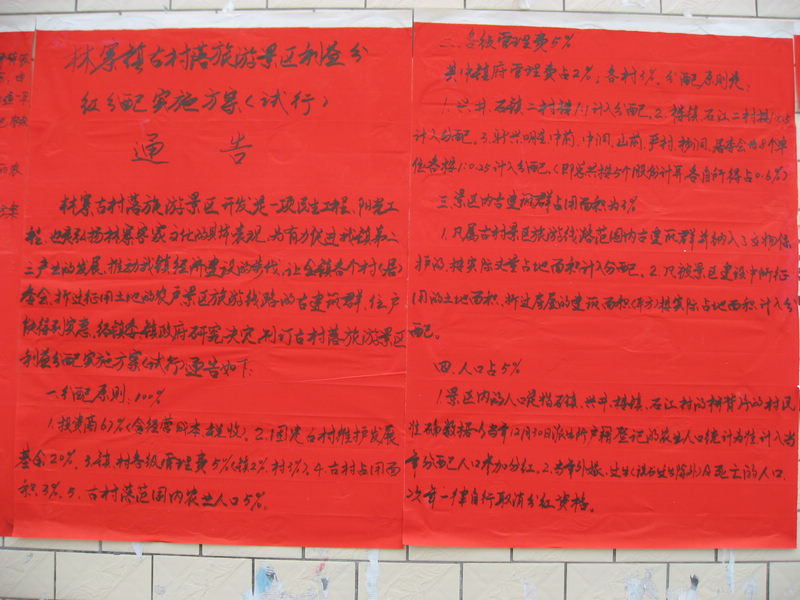 林寨镇古村落旅游景区利益分
级分配实施方案（试行）
通 告
林寨古村落旅游景区开发是一项民生工程、阳光工
程，也是弘扬林寨客家文化的具体表现，为有力促进我镇第二、
三产业的发展，推动我镇经济建设的步伐，让全镇各个村（居）
委会、拆迁征用土地的农户景区旅游线路的古建筑群、住户
快得到实惠，经镇委镇政府研究决定制订古村落旅游景区
利益分配实施方案（试行）通告如下：
一、分配原则：100%
1.投资商67%（含经营成本去造收）。2.1固定古村维护发展
基金20%。3.镇村各级管理费5%（镇2%、村3%）。4.古村占用面
积3%。5.古村落范围内农业人口5%。
二、各级管理费5%
其中镇府管理费占2%；各村3%，分配原则是：
1.兴井、石镇二村按1:1计入分配。2.楼镇、石江二村按1:0.5
计入分配。3.
位各按1:0.25计入分配。（即总共按5个股份计算各自所得占0.6%）
三、景区内古建筑群占用面积为3%
1.只属古村景区旅游线路范围内古建筑群并纳入文物保
护的，按实际丈量占地面积计入分配。2.只被景区建设中所征
用的土地面积、拆迁房屋的建筑面积（平方）按实际占地面积计入分
配。
四、人口占5%
1.景区内的人口是指石镇、兴井、楼镇、石江村的村民
性确数据以当年12月30日派出所户籍登记的农业人口统计为准计入当
年分配人口参加分红。2.当年外嫁、迁出及死亡的人口，
次年一律自行取消分红资格。